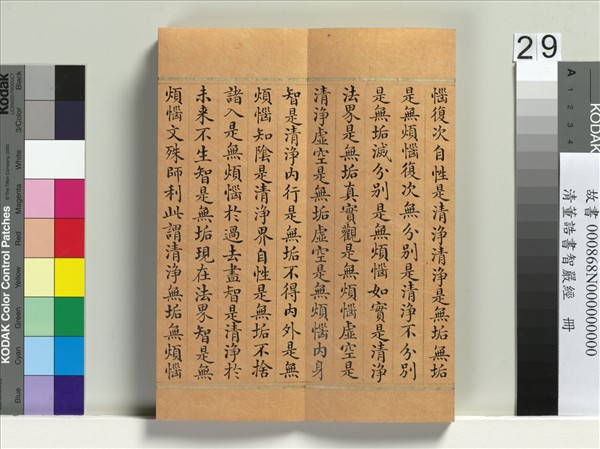 惱復次自性是清淨清淨是無垢無垢
是無煩惱復次無分別是清淨不分別
是無垢滅分別是無煩惱如實是清淨
法界是無垢真實觀是無煩惱虛空是
清淨虛空是無垢虛空是無煩惱内身
智是清淨内行是無垢不得内外是無
煩惱知陰是清淨界自性是無垢不捨
諸入是無煩惱於過去盡智是清淨於
未來不生智是無垢現在法界智是無
煩惱文殊師利此謂清淨無垢無煩惱
29
A 1 2 3 4
KODAK
故書 000868N000000000
清董誥書智嚴經 冊
Kodak
KODAK Color Control Patches
Blue Cyan Green Yellow Red Magenta White 3/Color Black